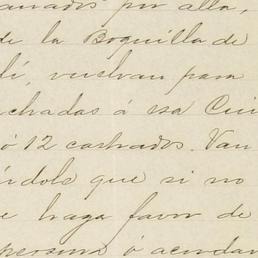 anados por alla,
de la Boquilla de
lí, vuelvan para
chadas á esa Cui
ó 12 castrados. Van
éndole que si no
e haga favor de
persona ó acordar